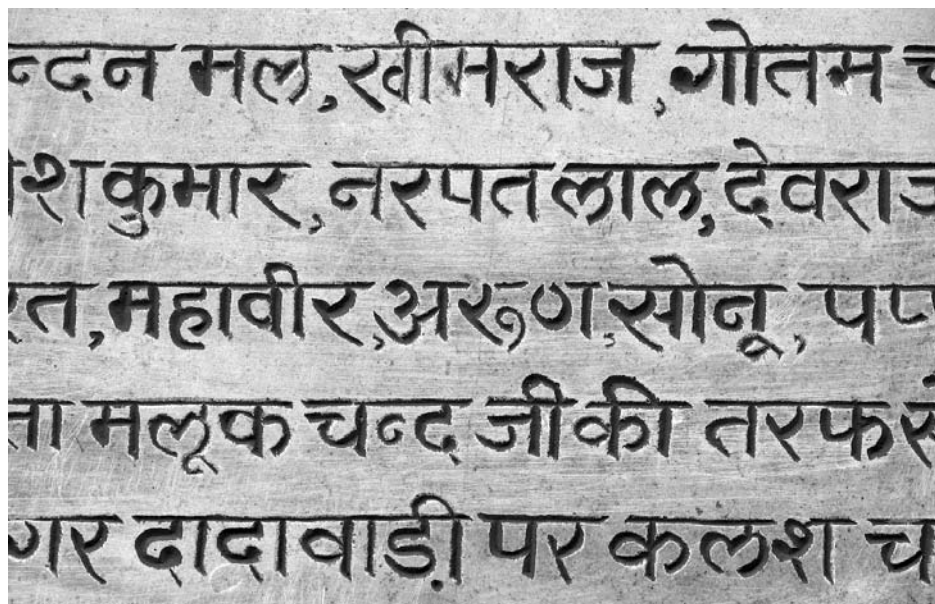 न्दन मल, खीमराज, गोतम च
शकुमार, नरपतलाल, देवराज
त, महावीर, अरूण, सोनू, पप्
ता मलूक चन्द जी की तरफ से
गर दादावाड़ी पर कलश च